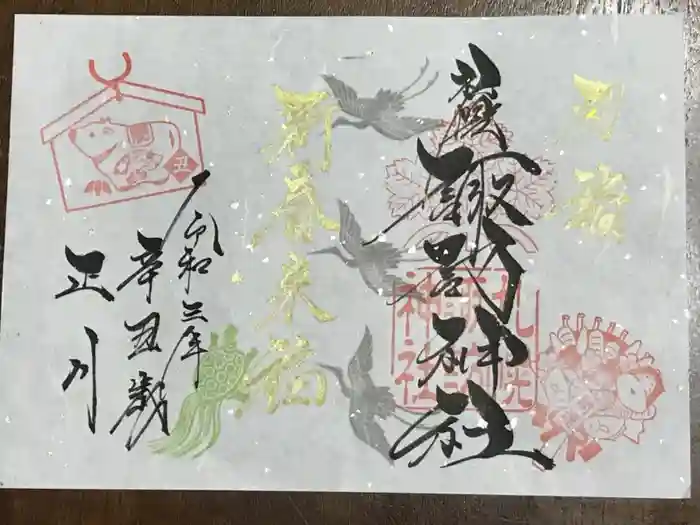 札幌
諏訪神社
札幌
諏訪
神社
新春来福
令和三年
辛丑歳
正月
丑